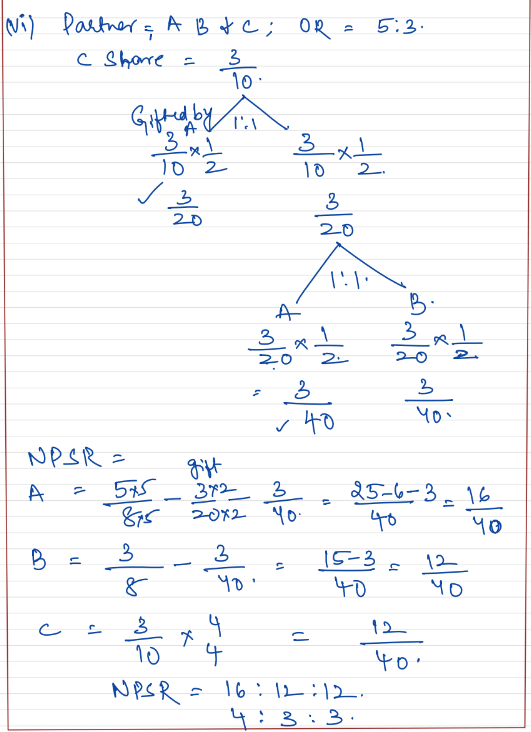 (vi) Partner = A B & C; OR = 5:3.
C Share = 3/10.
Gifted by A 1:1
3/10 × 1/2 3/10 × 1/2.
✓ 3/20 3/20
1:1.
A B.
3/20 × 1/2. 3/20 × 1/2
= 3/40 ✓ 3/40.
NPSR =
gift
A = 5×5/8×5 - 3×2/20×2 - 3/40. = 25-6-3/40 = 16/40
B = 3/8 - 3/40. = 15-3/40 = 12/40
C = 3/10 × 4/4 = 12/40.
NPSR = 16 : 12 : 12.
4 : 3 : 3.